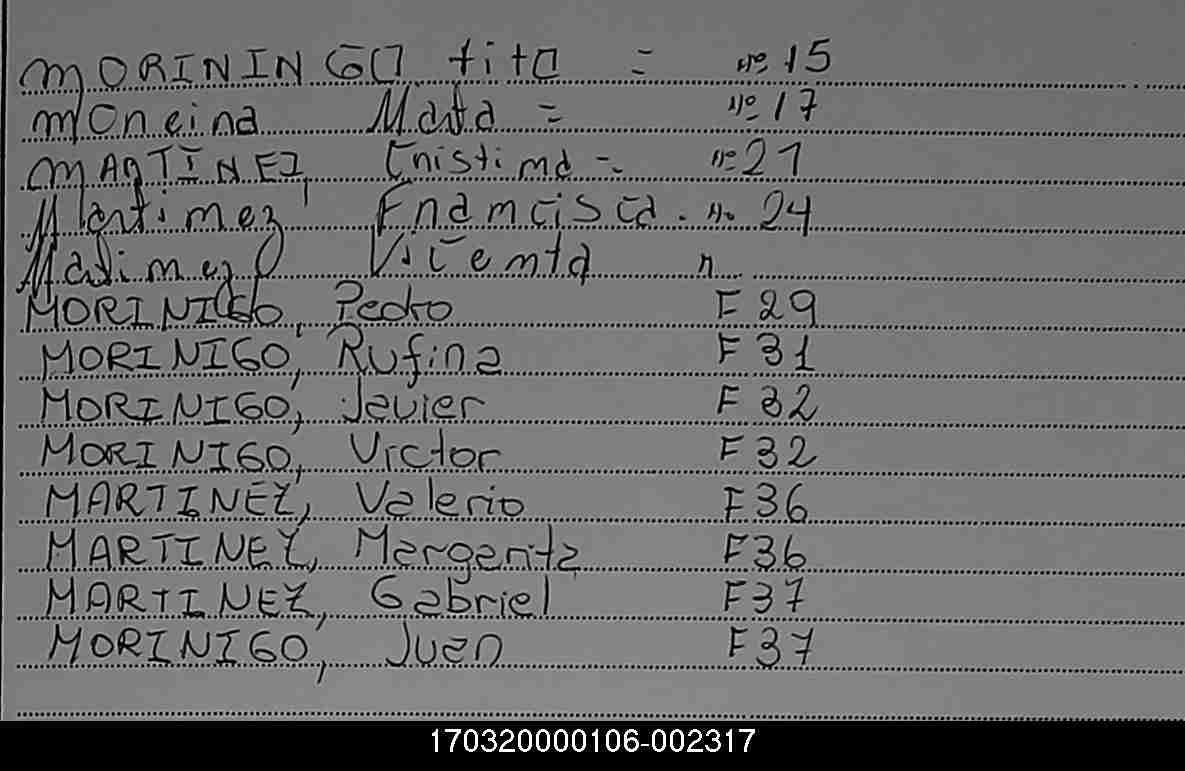 MORININGO tito = Nº 15
Moneina Mata = Nº 17
MARTINEZ, Cnistima = Nº 21
Martimez Fnamcisca. Nº 24
Matimez Vicemta n
MORINIGO, Pedro F 29
MORINIGO, Rufina F 31
MORINIGO, Javier F 32
MORINIGO, Victor F 32
MARTINEZ, Valerio F 36
MARTINEZ, Margarita F 36
MARTINEZ, Gabriel F 37
MORINIGO, Juan F 37
170320000106-002317